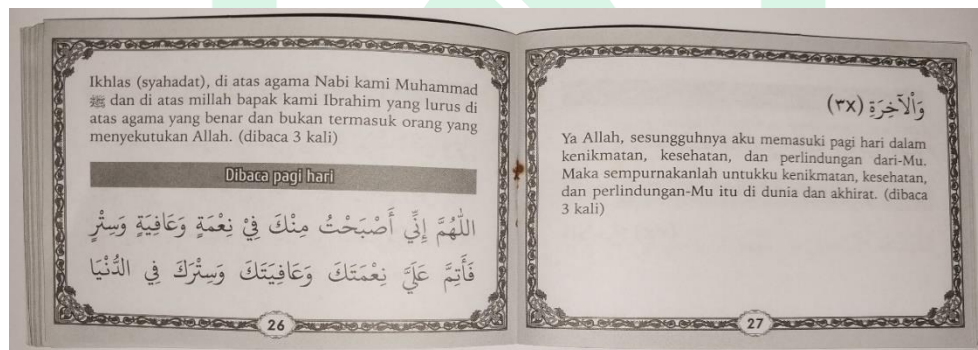 Ikhlas (syahadat), di atas agama Nabi kami Muhammad
ﷺ dan di atas millah bapak kami Ibrahim yang lurus di
atas agama yang benar dan bukan termasuk orang yang
menyekutukan Allah. (dibaca 3 kali)
Dibaca pagi hari
اللّٰهُمَّ إِنِّي أَصْبَحْتُ مِنْكَ فِيْ نِعْمَةٍ وَعَافِيَةٍ وَسِتْرٍ
فَأَتِمَّ عَلَيَّ نِعْمَتَكَ وَعَافِيَتَكَ وَسِتْرَكَ فِي الدُّنْيَا
26
وَالْآخِرَةِ (٣x)
Ya Allah, sesungguhnya aku memasuki pagi hari dalam
kenikmatan, kesehatan, dan perlindungan dari-Mu.
Maka sempurnakanlah untukku kenikmatan, kesehatan,
dan perlindungan-Mu itu di dunia dan akhirat. (dibaca
3 kali)
27